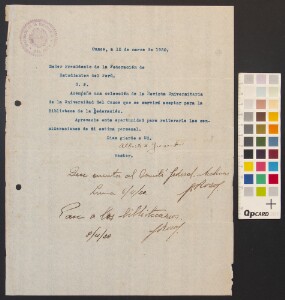 Cuzco, a 12 de marzo de 1920.
Señor Presidente de la Federación de
Estudiantes del Perú.
S. P.
Adjunto una colección de la Revista Universitaria
de la Universidad del Cuzco que se servirá aceptar para la
Biblioteca de la Federación.
Aprovecho esta oportunidad para reiterarle las con-
sideraciones de mi estima personal.
Dios guarde a Ud.
Rector.
Dese cuenta al Comité Federal
Lima
Pase a los Bibliotecarios
QPCARD